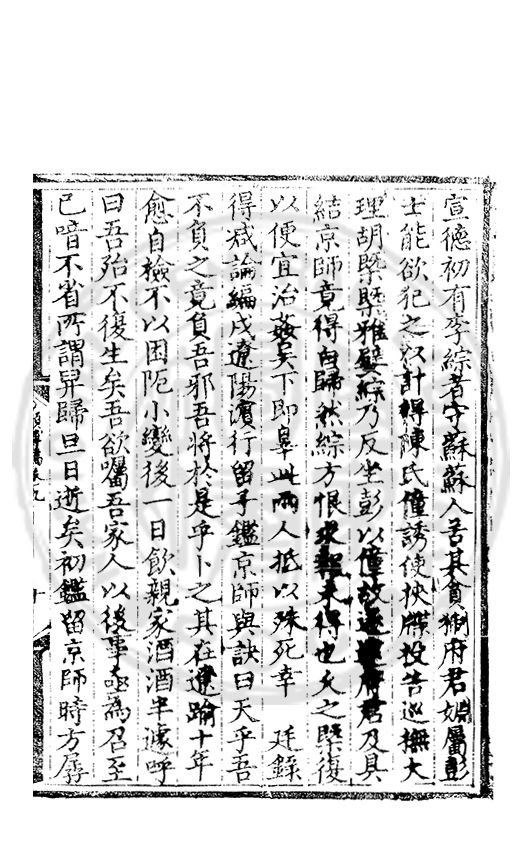 宣德初有李綜者守蘇蘇人苦其貪猾府君姻屬彭
士能欲犯之以計得陳氏僮誘使挾牒投告巡撫大
理胡槩槩雅嬖綜乃反坐彭以僮故逮府君及具
結京師竟得白歸然綜方恨求報未得也久之槩復
以便宜治姦吳下即辠此兩人抵以殊死幸 廷錄
得減論編戍遼陽瀕行留子鑑京師與訣曰天乎吾
不負之竟負吾邪吾將於是乎卜之其在遼踰十年
愈自檢不以困阨小變後一日飲親家酒酒半遽呼
曰吾殆不復生矣吾欲囑吾家人以後事亟為召至
已喑不省所謂舁歸旦日逝矣初鑑留京師時方孱
卷九